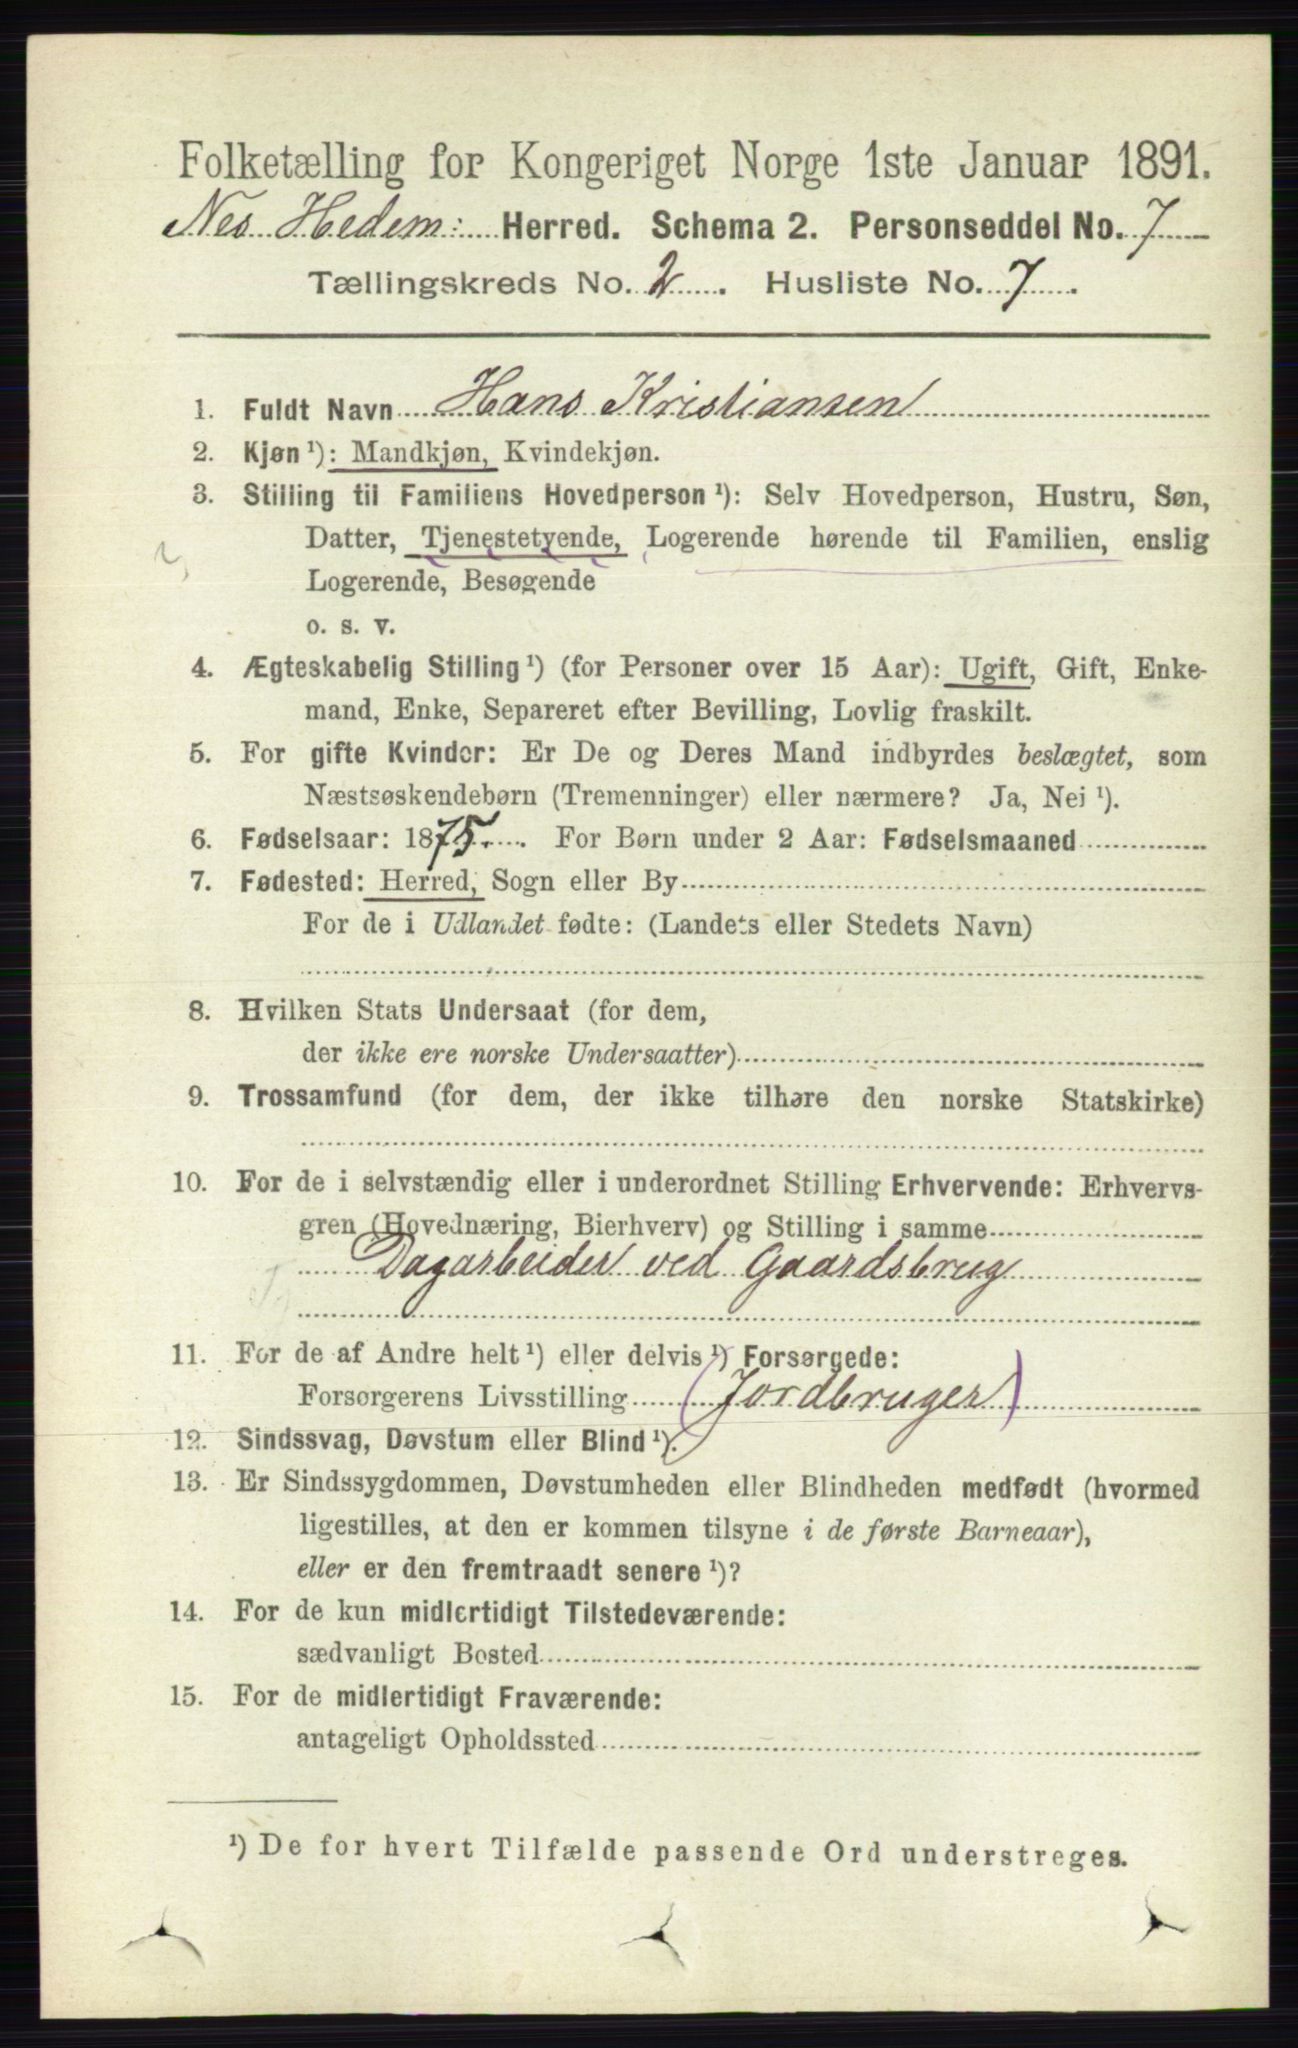 Folketælling for Kongeriget Norge 1ste Januar 1891.
Nes Hedem: Herred. Schema 2. Personseddel No. 7
Tællingskreds No. 2. Husliste No. 7.
1. Fuldt Navn Hans Kristiansen
2. Kjøn ¹): Mandkjøn, Kvindekjøn.
3. Stilling til Familiens Hovedperson ¹): Selv Hovedperson, Hustru, Søn,
Datter, Tjenestetyende, Logerende hørende til Familien, enslig
Logerende, Besøgende
o. s. v.
4. Ægteskabelig Stilling ¹) (for Personer over 15 Aar): Ugift, Gift, Enke-
mand, Enke, Separeret efter Bevilling, Lovlig fraskilt.
5. For gifte Kvinder: Er De og Deres Mand indbyrdes beslægtet, som
Næstsøskendebørn (Tremenninger) eller nærmere? Ja, Nei ¹).
6. Fødselsaar: 1875. For Børn under 2 Aar: Fødselsmaaned
7. Fødested: Herred, Sogn eller By
For de i Udlandet fødte: (Landets eller Stedets Navn)
8. Hvilken Stats Undersaat (for dem,
der ikke ere norske Undersaatter)
9. Trossamfund (for dem, der ikke tilhøre den norske Statskirke)
10. For de i selvstændig eller i underordnet Stilling Erhvervende: Erhvervs-
gren (Hovednæring, Bierhverv) og Stilling i samme
Dagarbeider ved Gaardsbrug
11. For de af Andre helt ¹) eller delvis ¹) Forsørgede:
Forsørgerens Livsstilling (Jordbruger)
12. Sindssvag, Døvstum eller Blind ¹).
13. Er Sindssygdommen, Døvstumheden eller Blindheden medfødt (hvormed
ligestilles, at den er kommen tilsyne i de første Barneaar),
eller er den fremtraadt senere ¹)?
14. For de kun midlertidigt Tilstedeværende:
sædvanligt Bosted
15. For de midlertidigt Fraværende:
antageligt Opholdssted
¹) De for hvert Tilfælde passende Ord understreges.